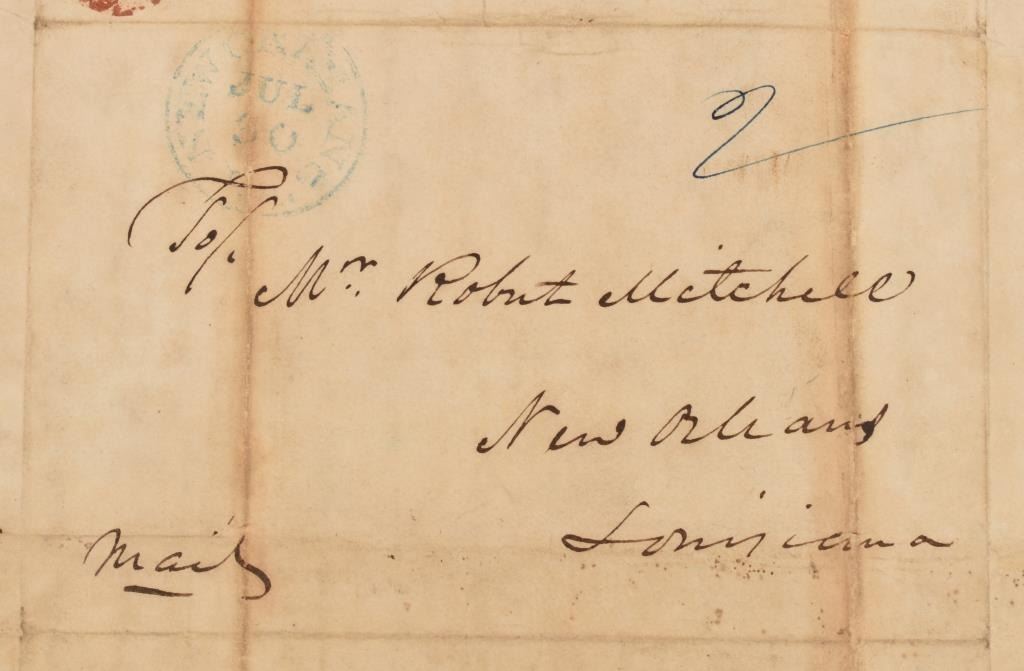 JUL
30
To/.
Mr. Robert Mitchell
New Orleans
Louisiana
Mail